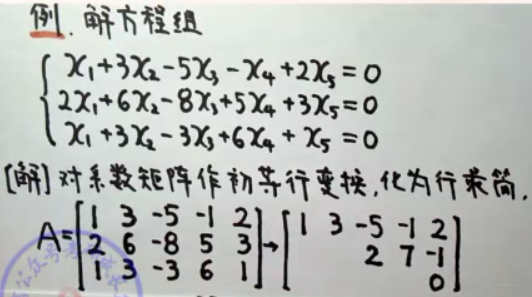 例. 解方程组
x₁+3x₂-5x₃-x₄+2x₅=0
2x₁+6x₂-8x₃+5x₄+3x₅=0
x₁+3x₂-3x₃+6x₄+x₅=0
[解]对系数矩阵作初等行变换,化为行最简,
A=[1 3 -5 -1 2 → [1 3 -5 -1 2
2 6 -8 5 3 2 7 -1
1 3 -3 6 1] 0]
公众号